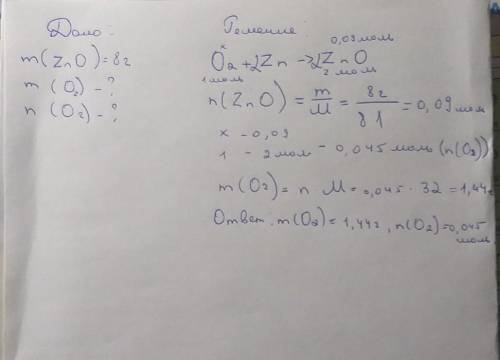 Дано:
m(ZnO)=8г
m(O₂)-?
n(O₂)-?
Решение
x 0,09 моль
O₂+2Zn→2ZnO
1 моль 2 моль
n(ZnO)=m/M=8г/81=0,09 мол
x - 0,09
1 - 2мол - 0,045 моль (n(O₂))
m(O₂)=n M=0,045·32=1,44г
Ответ. m(O₂)=1,44г, n(O₂)=0,045
моль